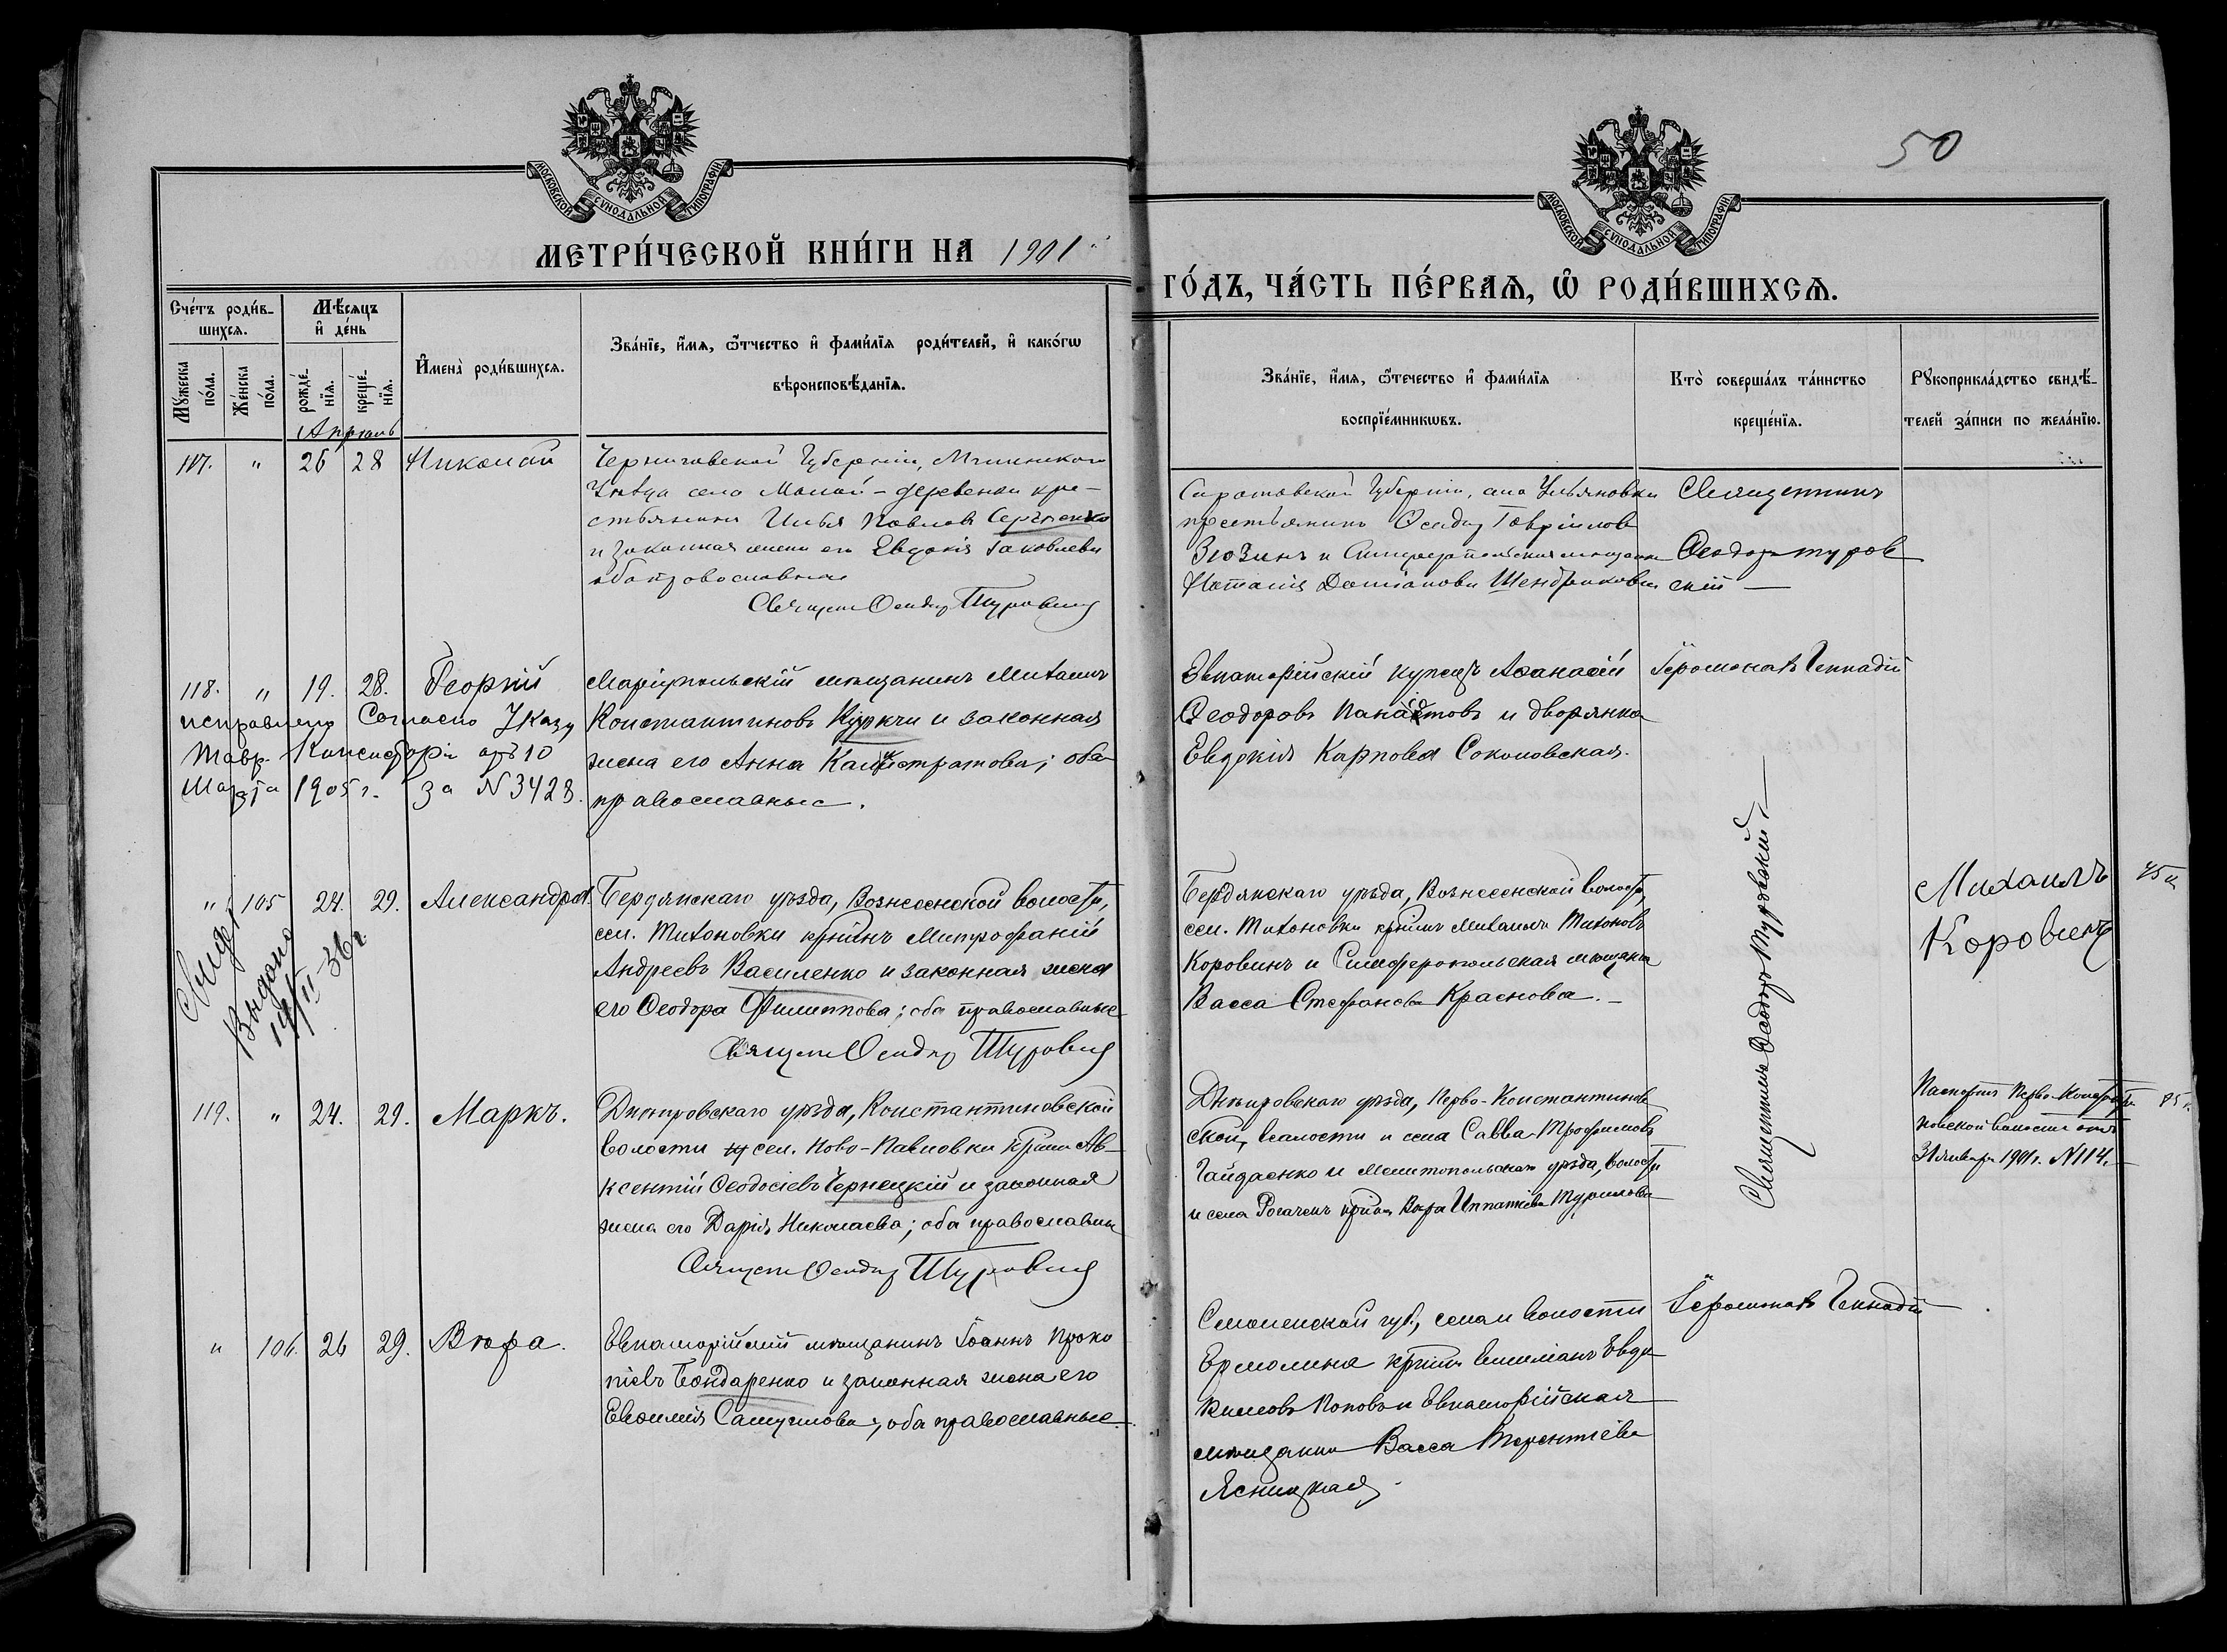 50
МОСКОВСКОЙ СѴНОДАЛЬНОЙ ТИПОГРАФІИ
МОСКОВСКОЙ СѴНОДАЛЬНОЙ ТИПОГРАФІИ
МЕТРИ́ЧЕСКОЙ КНИ́ГИ НА 1901
ГО́ДЪ, ЧА́СТЬ ПЕ́РВАѦ, Ѡ҆ РОДИ́ВШИХСѦ.
Сче́тъ роди́в-
шихсѧ.
Мꙋ́жеска по́ла.
Же́нска по́ла.
Мѣ́сѧцъ
и҆ де́нь
рожде́-
нїѧ.
креще́-
нїѧ.
Апрѣль
И҆мена̀ роди́вшихсѧ.
Зва́нїе, и҆́мѧ, ѻ҆́тчество и҆ фами́лїѧ роди́телей, и҆ како́гѡ
вѣроисповѣ́данїѧ.
Зва́нїе, и҆́мѧ, ѻ҆́течество и҆ фами́лїѧ
воспрїе́мникѡвъ.
Кто̀ соверша́лъ та́инство
креще́нїѧ.
Рꙋкоприкла́дство свидѣ́-
телей за́писи по жела́нїю.
117. " 26 28 Николай
Черниговской Губерніи, Мглинскаго
Уѣзда села Малой-деревенки кре-
стьянинъ Илья Павловъ
и законная жена его Евдокія Іаковлева
оба православные
Священ Ѳеодор Туровскій
Саратовской Губерніи, села Ульяновки
крестьянинъ Ѳеодор Гавріиловъ
Зюзинъ и Симферопольская мещанка
Наталія Даміанова
Священникъ
Ѳеодоръ Туров
скій —
118. " 19. 28. Георгій
исправлено Согласно Указу
Тавр. Консисторіи отъ 10
Марта 1905 г. за N 3428.
Маріупольскій мѣщанинъ Михаилъ
Константиновъ Куркчи и законная
жена его Анна Калистратова; оба
православные.
Евпаторійскій купецъ Аѳанасій
Ѳеодоровъ и дворянка
Евдокія Карпова Соколовская.
Іеромонахъ Геннадій
" 105 24. 29. Александра.
Свид.
Выдано
14/II-36 г.
Бердянскаго уѣзда, Вознесенской волости,
сел. Тихоновки кр-нинъ Митрофаній
Андреевъ Василенко и законная жена
его Ѳеодора Филиппова; оба православные
Священ Ѳеодор Туровскій
Бердянскаго уѣзда, Вознесенской волости,
сел. Тихоновки кр-нинъ Михаилъ Тихоновъ
Коровинъ и Симферопольская мѣщанка
Васса Стефанова Краснова. —
Священникъ Ѳеодоръ Туровскій —
Михаилъ
Коровинъ
45 к
119. " 24. 29. Маркъ.
Днѣпровскаго уѣзда, Константиновской
волости сел. Ново-Павловки кр-нинъ Ав-
ксентій Ѳеодосіевъ Чернецкій и законная
жена его Дарія Николаева; оба православны
Священ Ѳеодор Туровскій
Днѣпровскаго уѣзда, Перво-Константинов
ской, волости и села Савва Трофимовъ
Гайдаенко и Мелитопольскаго уѣзда, волости
и села Рогачекъ кр-нка Вѣра Ипатіева
Паспортъ Перво-Константи
новской волости отъ
31 января 1901 г. N 114.
85 к.
" 106. 26 29. Вѣра.
Евпаторійскій мѣщанинъ Іоаннъ Проко
піевъ Бондаренко и законная жена его
Евѳимія Самуилова; оба православные.
Смоленской губ., села и волости
Ермолина кр-нинъ Евдо
кимовъ Поповъ и Евпаторійская
мѣщанка Васса Терентіева
Ясницкая.
Іеромонахъ Геннадій